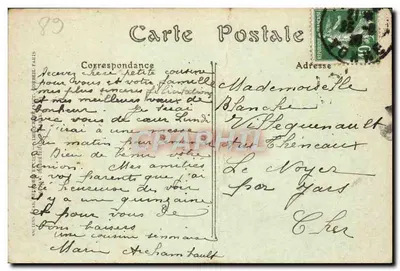 89
Carte Postale
Correspondance
Adresse
Recevez chère petite cousine
pour vous et votre famille
mes plus sincères félicitations
et mes meilleurs vœux de
bonheur. Je serai
avec vous de cœur Lundi
et j'irai à une messe
du matin pour vous
Bien de votre
union. Mes amitiés
à vos parents que j'ai
été heureuse de voir
il y a une quinzaine
et pour vous de
bons baisers
une cousine
Marie Archambault
Mademoiselle
Blanche
Villeguenault
Les Théneaux
Le Noyer
par Jars
Cher